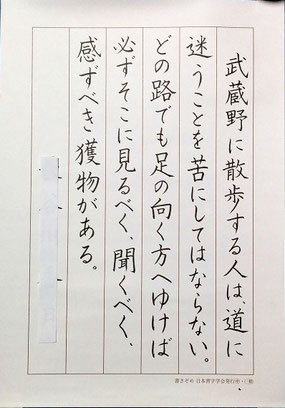 武蔵野に散歩する人は、道に
迷うことを苦にしてはならない。
どの路でも足の向く方へゆけば
必ずそこに見るべく、聞くべく、
感ずべき獲物がある。